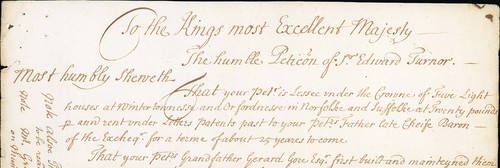 To the Kings most Excellent Majesty
The humble Petic̃on of Sr. Edward Turnor.
Most humbly Sheweth
That your Petr. is Lessee under the Crowne of Five Light
houses at Wintertonnesse and Orfordnesse in Norfolke and Suffolke at Twenty pounds
p and rent under Letters Patents past to your Petrs. Father late Cheife Baron
of the Excheqr. for a terme of about 25 years to come
That your Petrs Grandfather Gerard Gore Esqr. first built and manteyned them